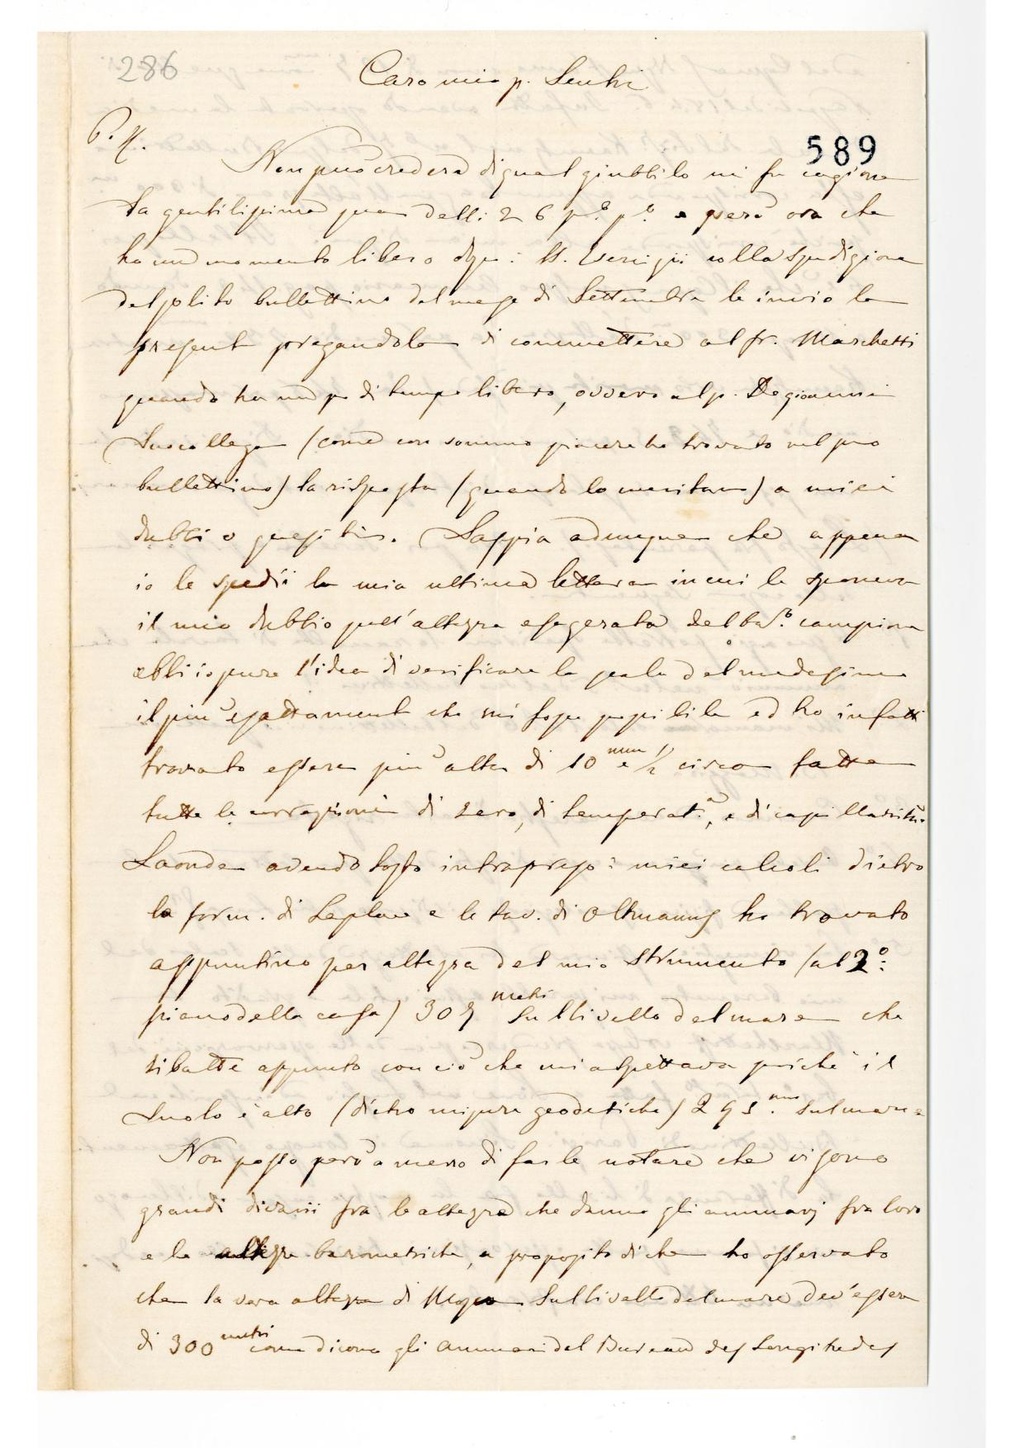 286
Caro mio p. Secchi
589
P. C.
Non può credere di qual giubbilo mi fu cagione
la gentilissima sua delli 26 p.º p.º e però ora che
ho un momento libero dopo i SS. Esercizii colla spedizione
del solito bullettino del mese di Settembre le invio la
presente pregandola di commettere al fr. Marchetti
quando ha un po di tempo libero, ovvero al p. Degiovanni
suo collega (come con sommo piacere ho trovato nel suo
bullettino) la risposta (quando lo meritano) a miei
dubbi o quesiti. Sappia adunque che appena
io le spedii la mia ultima lettera in cui le sponeva
il mio dubbio sull'altezza esagerata del bar.º campione
ebbi io pure l'idea di verificare la scala del medesimo
il più esattamente che mi fosse possibile ed ho infatti
trovato essere più alta di 10 mm e 1/2 circa fatte
tutte le correzioni di zero, di temperat.ª, e di capillarità.
Laonde avendo tosto intrapreso i miei calcoli dietro
la form. di Laplace e le tav. di Oltmanns ho trovato
appuntino per altezza del mio strumento (al 2º:
piano della casa) 305 metri sul livello del mare che
ribatte appunto con ciò che mi aspettava poichè il
suolo è alto (dietro misure geodetiche) 293 sul mare
Non posso però a meno di farle notare che vi sono
grandi divarii fra le altezze che danno gli annuarj fra loro
e le altezze barometriche, a proposito di che ho osservato
che la vera altezza di sul livello del mare dev'essere
di 300 metri come dicono gli annuari del Bureau des Longitudes